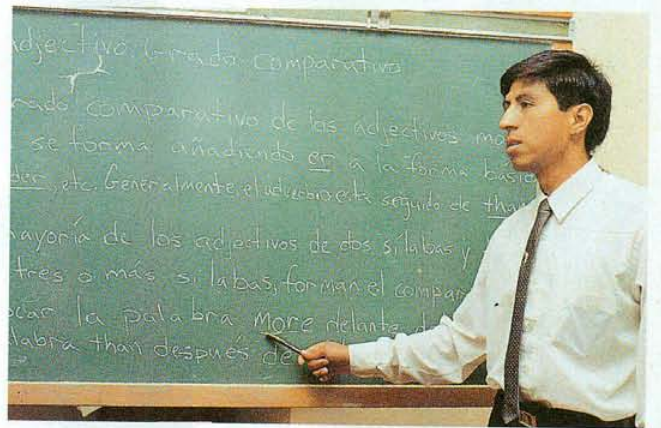 adjetivo. Grado comparativo
rado comparativo de los adjectivos mo
se forma añadiendo er a la forma basic
der, etc. Generalmente, el adverbio esta seguido de than
ayoría de los adjectivos de dos sílabas y
tres o más sílabas, forman el compar
ocar la palabra More delante de
labra than después de